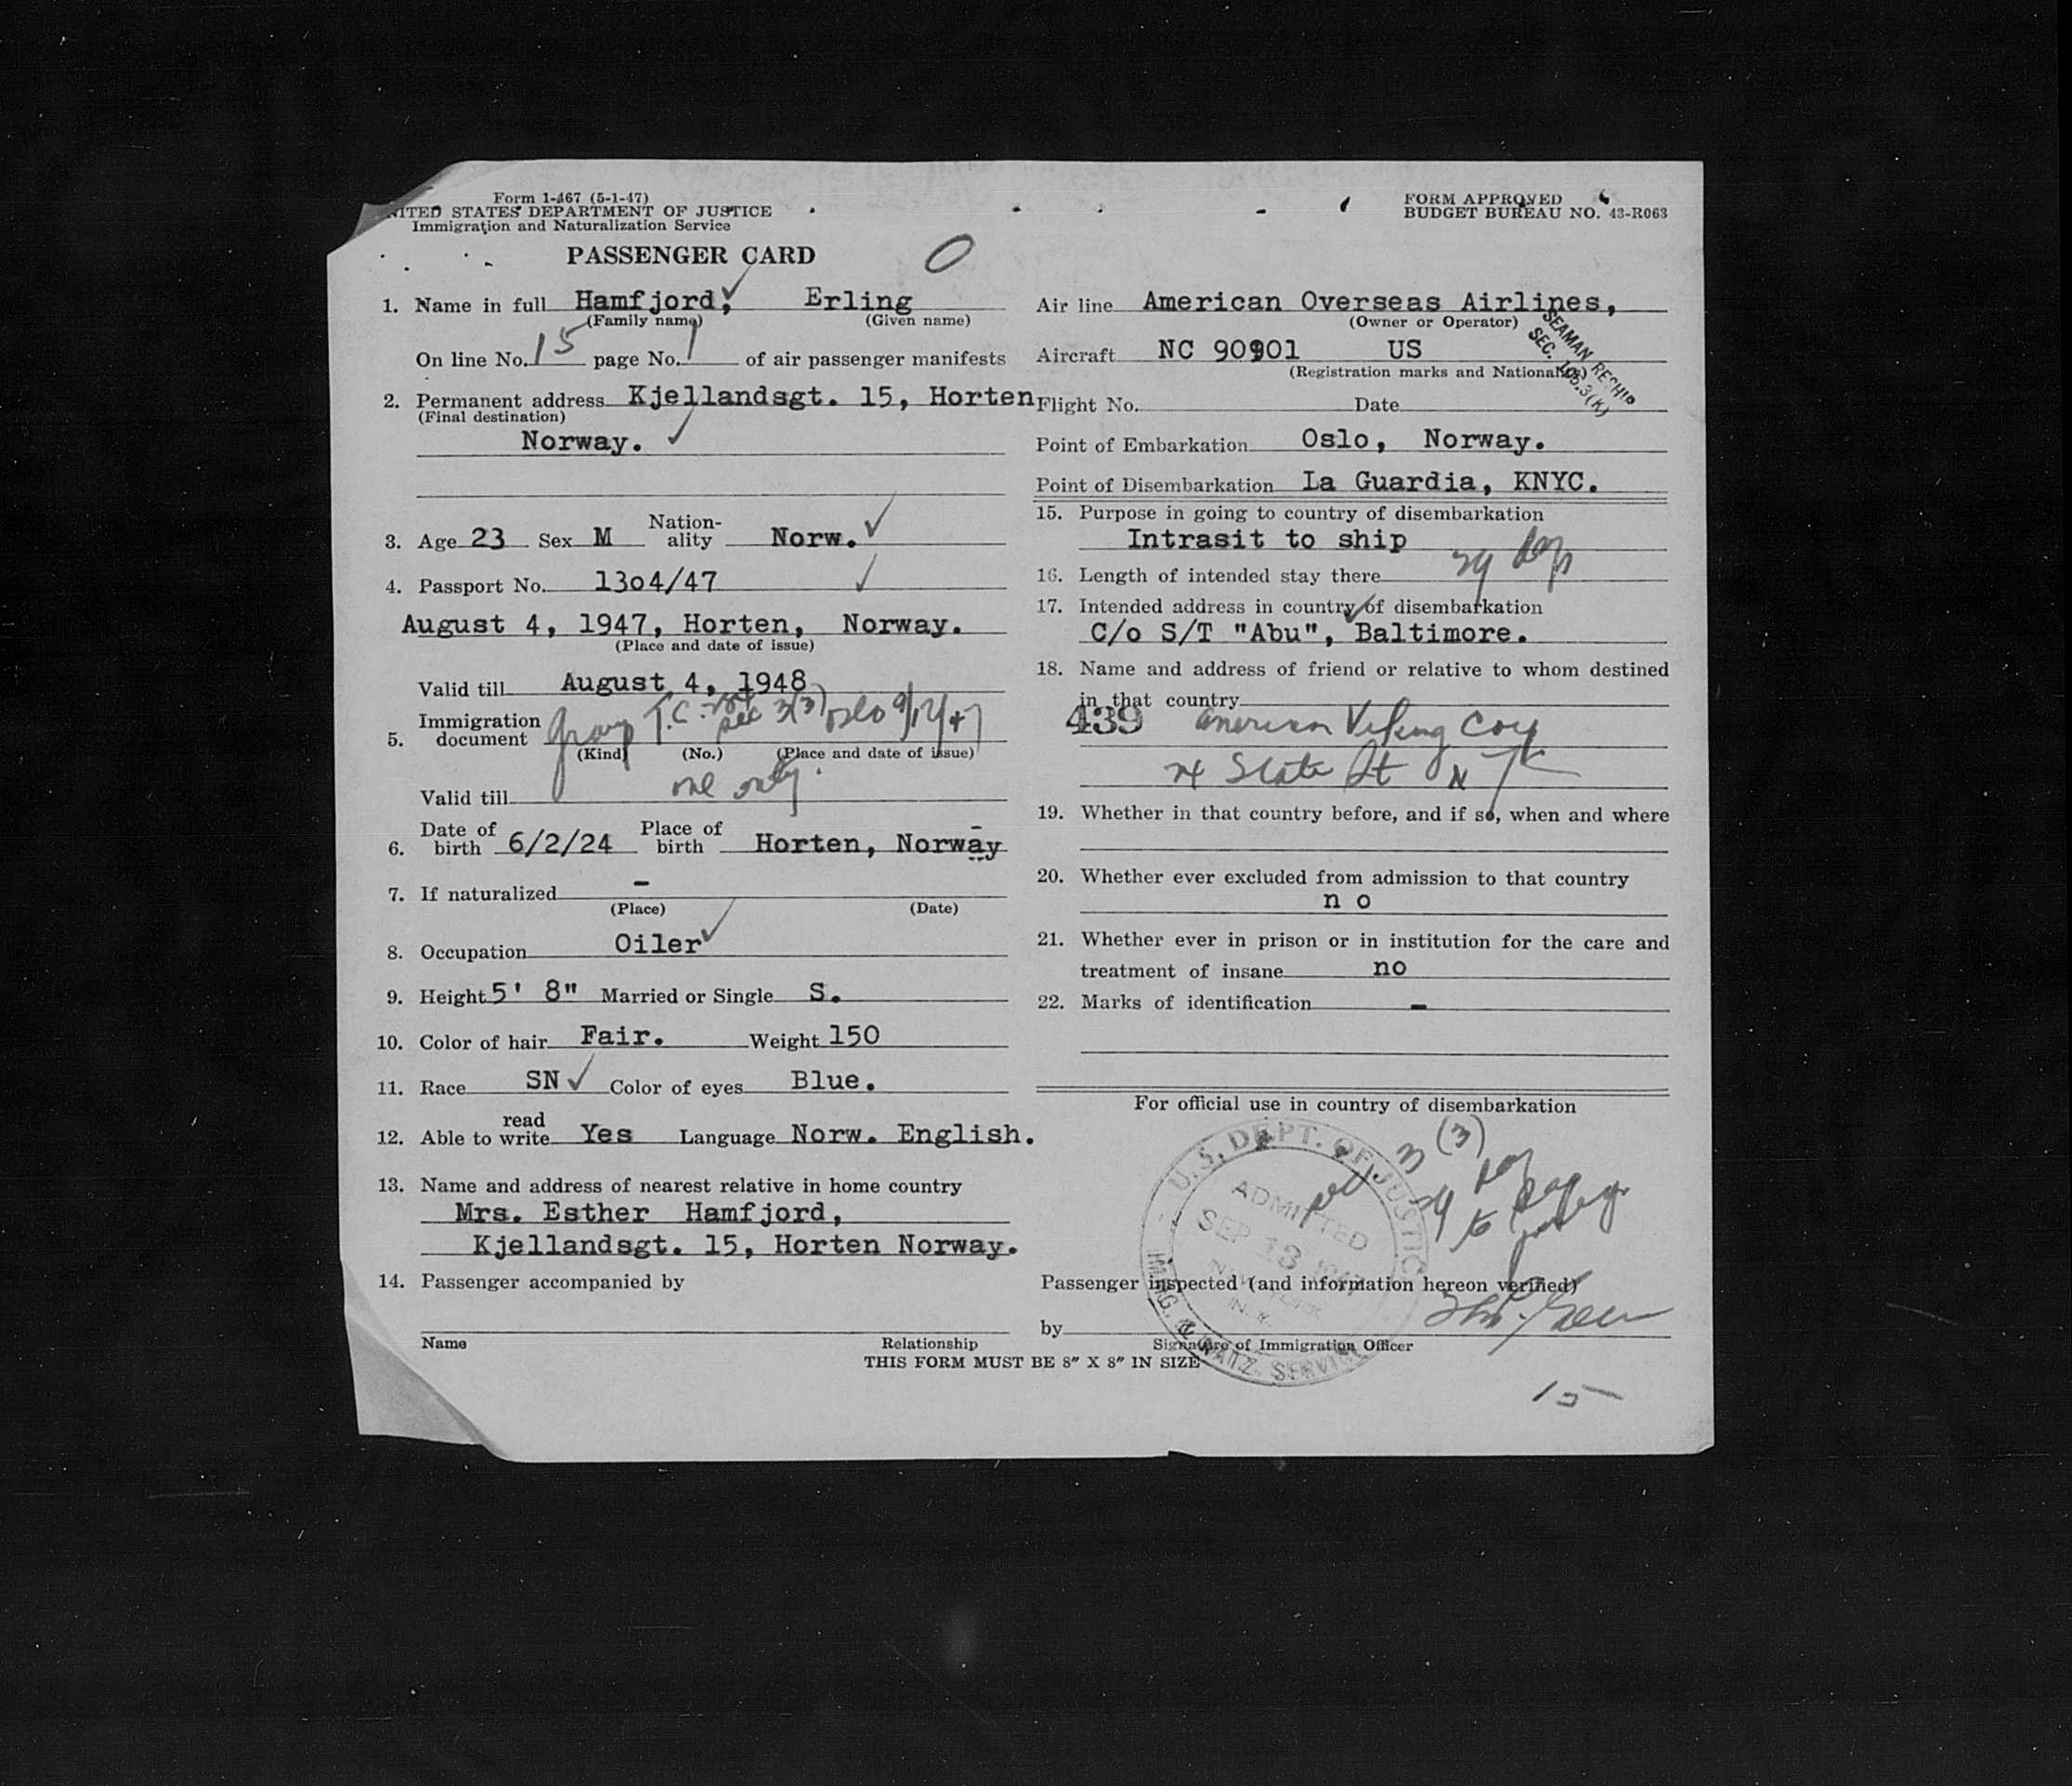 Form 1-467 (5-1-47)
UNITED STATES DEPARTMENT OF JUSTICE
Immigration and Naturalization Service
FORM APPROVED
BUDGET BUREAU NO. 43-R063
PASSENGER CARD
0
1. Name in full Hamfjord, Erling
(Family name) (Given name)
On line No. 15 page No. 1 of air passenger manifests
2. Permanent address Kjellandsgt. 15, Horten
(Final destination)
Norway.
3. Age 23 Sex M Nation-ality Norw.
4. Passport No. 1304/47
August 4, 1947, Horten, Norway.
(Place and date of issue)
Valid till August 4, 1948
5. Immigration document Group T.C. sec 3(3) Oslo 9/12/47
(Kind) (No.) (Place and date of issue)
Valid till one only.
6. Date of birth 6/2/24 Place of birth Horten, Norway
7. If naturalized -
(Place) (Date)
8. Occupation Oiler
9. Height 5' 8" Married or Single S.
10. Color of hair Fair. Weight 150
11. Race SN Color of eyes Blue.
12. Able to read write Yes Language Norw. English.
13. Name and address of nearest relative in home country
Mrs. Esther Hamfjord,
Kjellandsgt. 15, Horten Norway.
14. Passenger accompanied by
Name Relationship
THIS FORM MUST BE 8" X 8" IN SIZE
Air line American Overseas Airlines,
(Owner or Operator)
SEAMAN RESHIP
SEC. 105.3(K)
Aircraft NC 90901 US
(Registration marks and Nationality)
Flight No. Date
Point of Embarkation Oslo, Norway.
Point of Disembarkation La Guardia, KNYC.
15. Purpose in going to country of disembarkation
Intrasit to ship
16. Length of intended stay there 29 days
17. Intended address in country of disembarkation
C/o S/T "Abu", Baltimore.
18. Name and address of friend or relative to whom destined
in that country
439 American Viking Corp
24 State St N Y C
19. Whether in that country before, and if so, when and where
20. Whether ever excluded from admission to that country
n o
21. Whether ever in prison or in institution for the care and
treatment of insane no
22. Marks of identification -
For official use in country of disembarkation
U.S. DEPT. OF JUSTICE
ADMITTED
SEP 13 1947
NEW YORK
N. Y.
IMMIG. & NATZ. SERVICE
sec 3 (3)
29 days
to
Passenger inspected (and information hereon verified)
by
Signature of Immigration Officer
15